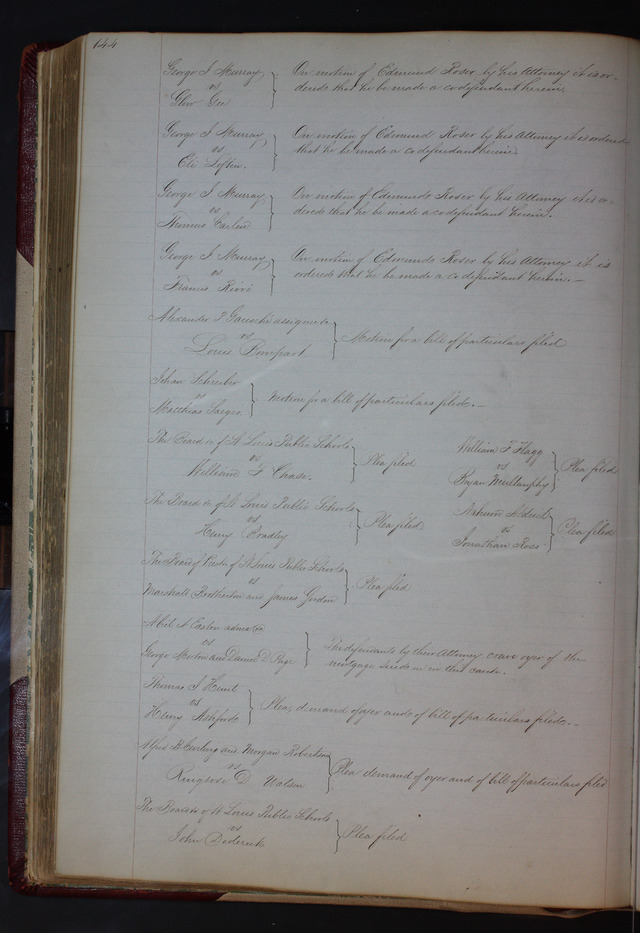 144
George I Murray
vs
Gee
On motion of Edmund Roser by his Attorney it is or-
dered that he be made a codefendant herein.
George I Murray
vs
Eli Leftin.
On motion of Edmund Roser by his Attorney it is ordered
that he be made a codefendant herein
George I Murray
vs
Thomas
On motion of Edmund Roser by his Attorney it is or-
dered that he be made a codefendant herein.
George I Murray
vs
Francis
On motion of Edmund Roser by his Attorney it is
ordered that he be made a codefendant herein.—
Alexander assignee &c
vs
Louis Bompart
Motion for a bill of particulars filed
Johan Schreiber
vs
Matthias
Motion for a bill of particulars filed.—
The Board &c of St Louis Public Schools
vs
William F Chase.
Plea filed
William F Flagg
vs
Bryan Mullanphy
Plea filed
The Board &c of St Louis Public Schools
vs
Henry
Plea filed
vs
Jonathan Ross
Plea filed
The Board of St Louis Public Schools
vs
Marshall Brotherton and James Gordon
Plea filed
A Easton
vs
George Morton and Daniel D Page
The defendants by their Attorney crave oyer of the
mortgage in this cause.
Thomas J Hunt
vs
Henry Ashford
Plea, demand of oyer and of bill of particulars filed.—
Alfred and Morgan Robertson
vs
D Watson
Plea demand of oyer and of bill of particulars filed
The Board &c of St Louis Public Schools
vs
John
Plea filed